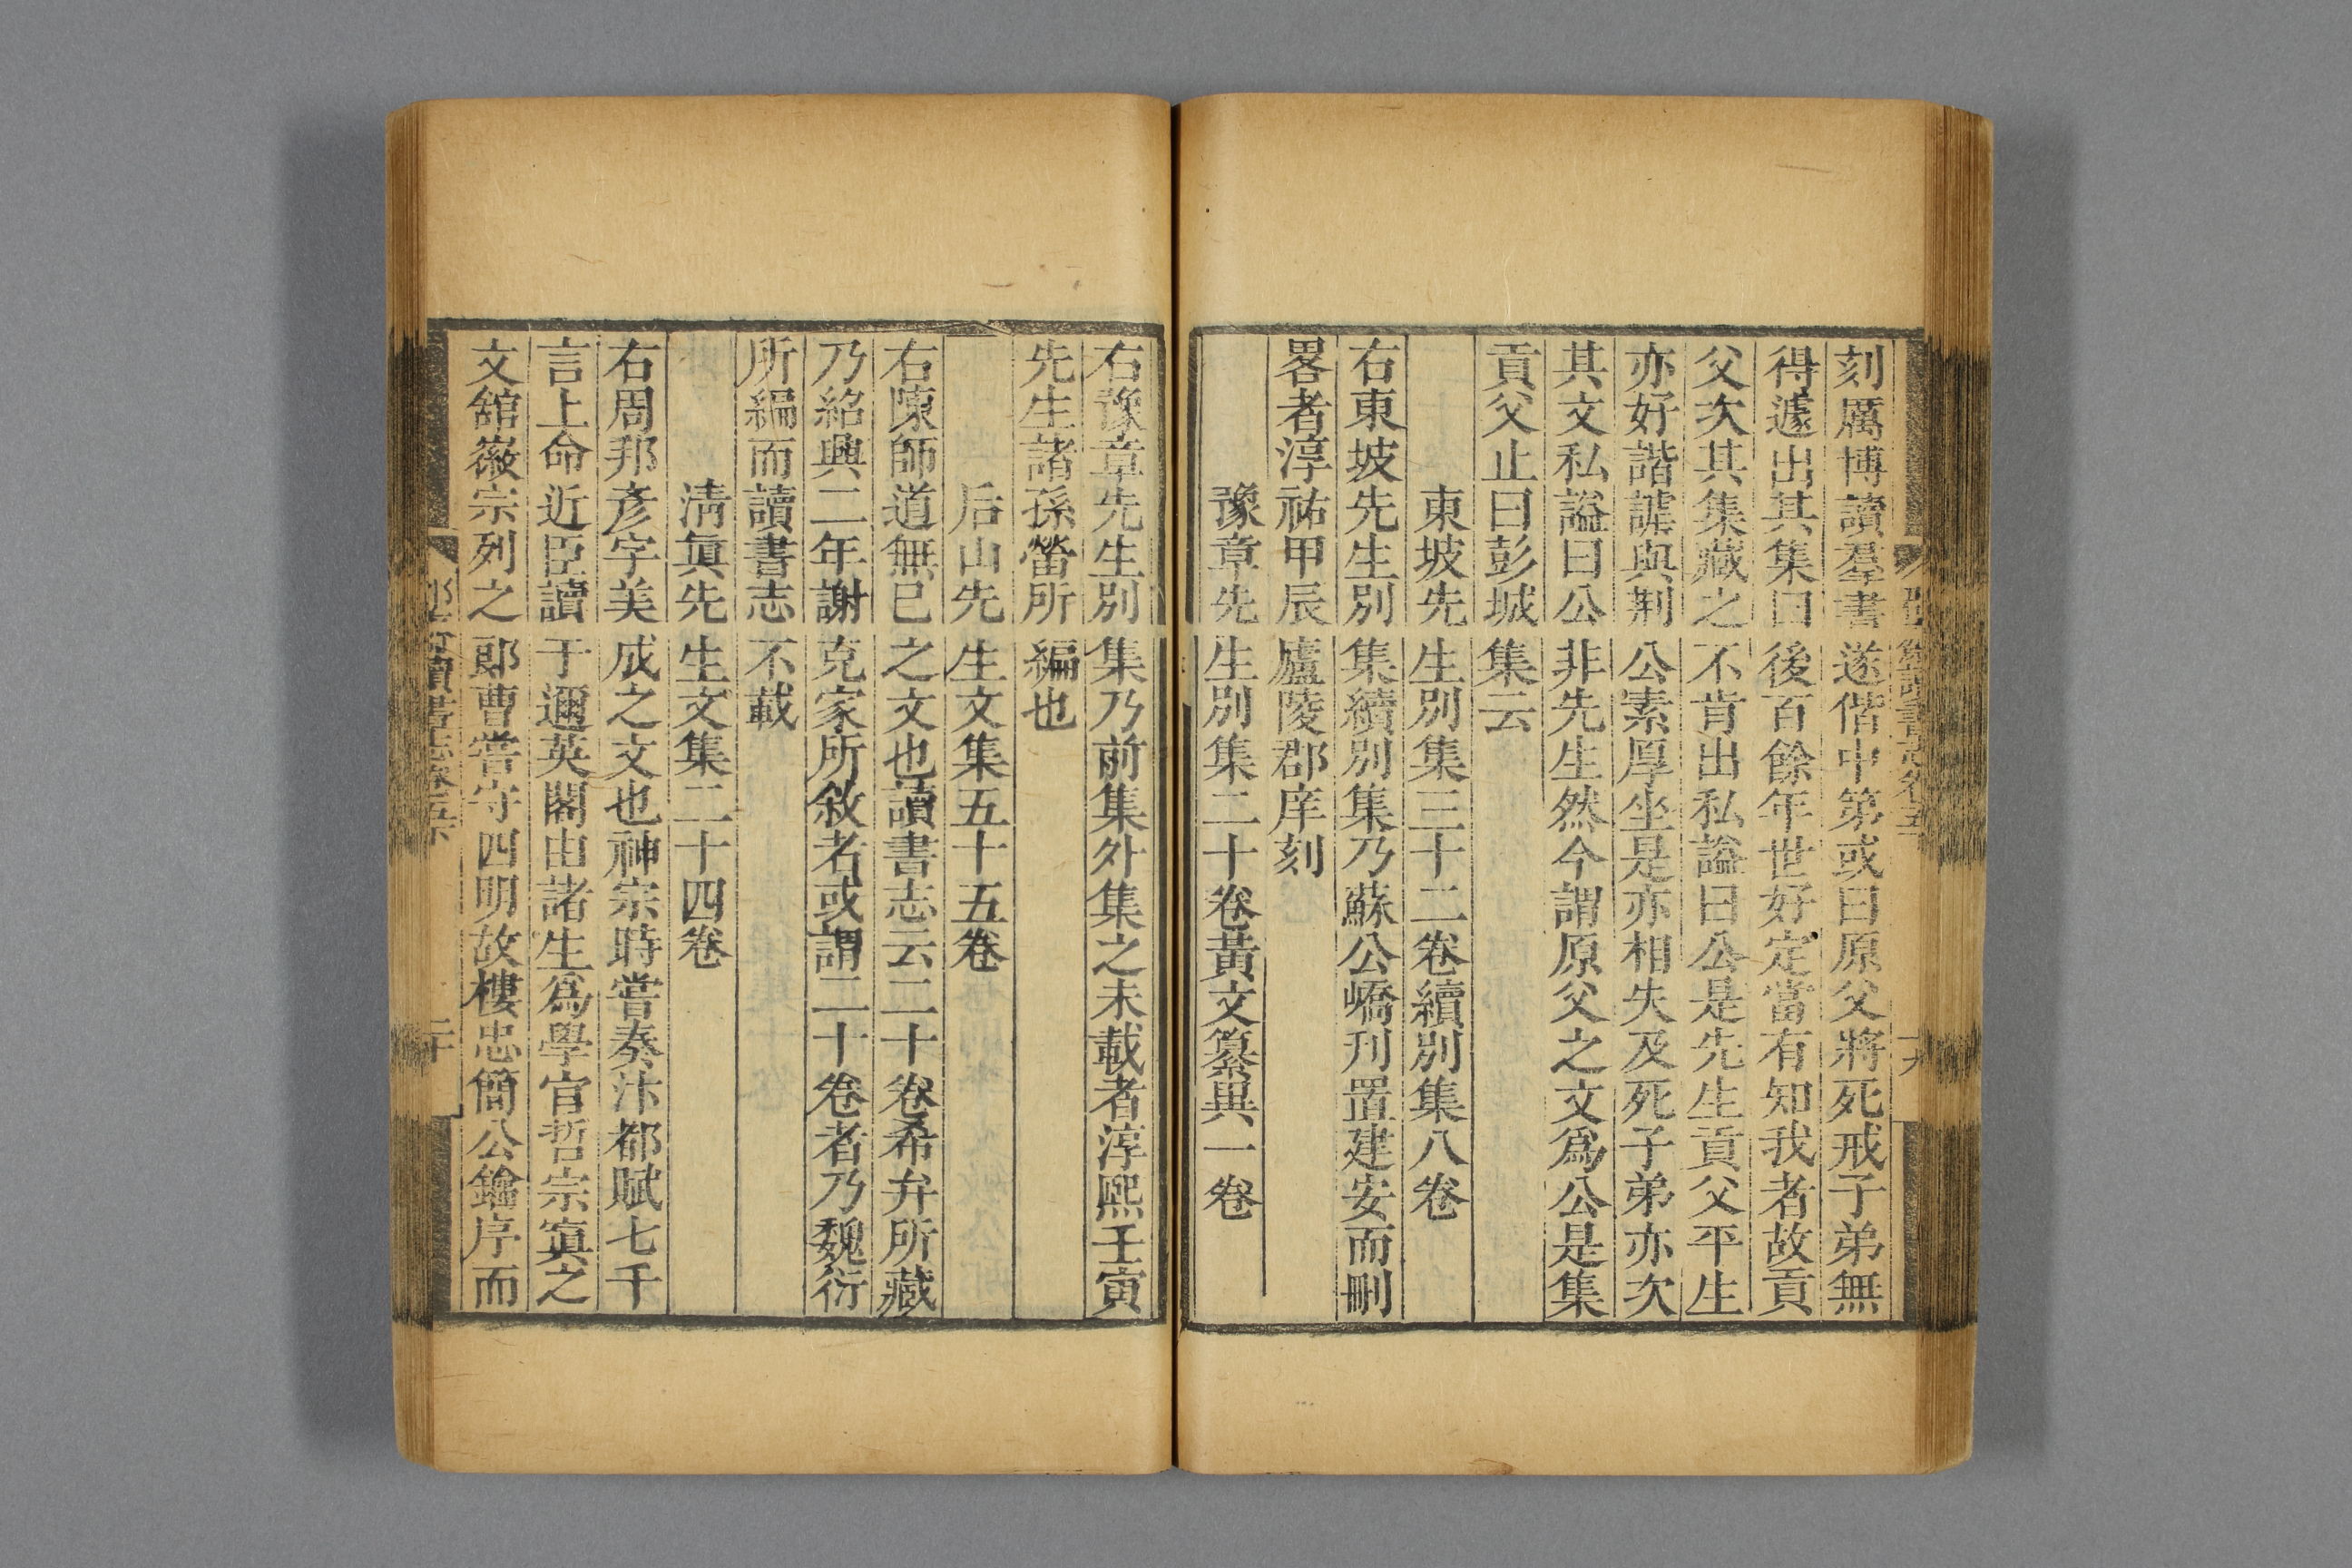 刻厲博讀羣書遂偕中第或曰原父將死戒子弟無
得遽出其集曰後百餘年世好定當有知我者故貢
父次其集藏之不肯出私謚曰公是先生貢父平生
亦好諧謔與荆公素厚坐是亦相失及死子弟亦次
其文私謚曰公非先生然今謂原父之文爲公是集
貢父止曰彭城集云
東坡先生別集三十二卷續別集八卷
右東坡先生別集續別集乃蘇公嶠刊置建安而刪
畧者淳祐甲辰廬陵郡庠刻
豫章先生別集二十卷黃文纂異一卷
右豫章先生別集乃前集外集之未載者淳熙壬寅
先生諸孫㽦所編也
后山先生文集五十五卷
右陳師道無已之文也讀書志云二十卷希弁所藏
乃紹興二年謝克家所敘者或謂二十卷者乃魏衍
所編而讀書志不載
淸眞先生文集二十四卷
右周邦彥字美成之文也神宗時嘗奏汴都賦七千
言上命近臣讀于邇英閣由諸生爲學官哲宗寘之
文舘徽宗列之郎曹嘗守四明故樓忠簡公鑰序而
讀書志卷五下
十九
讀書志卷五下
二十